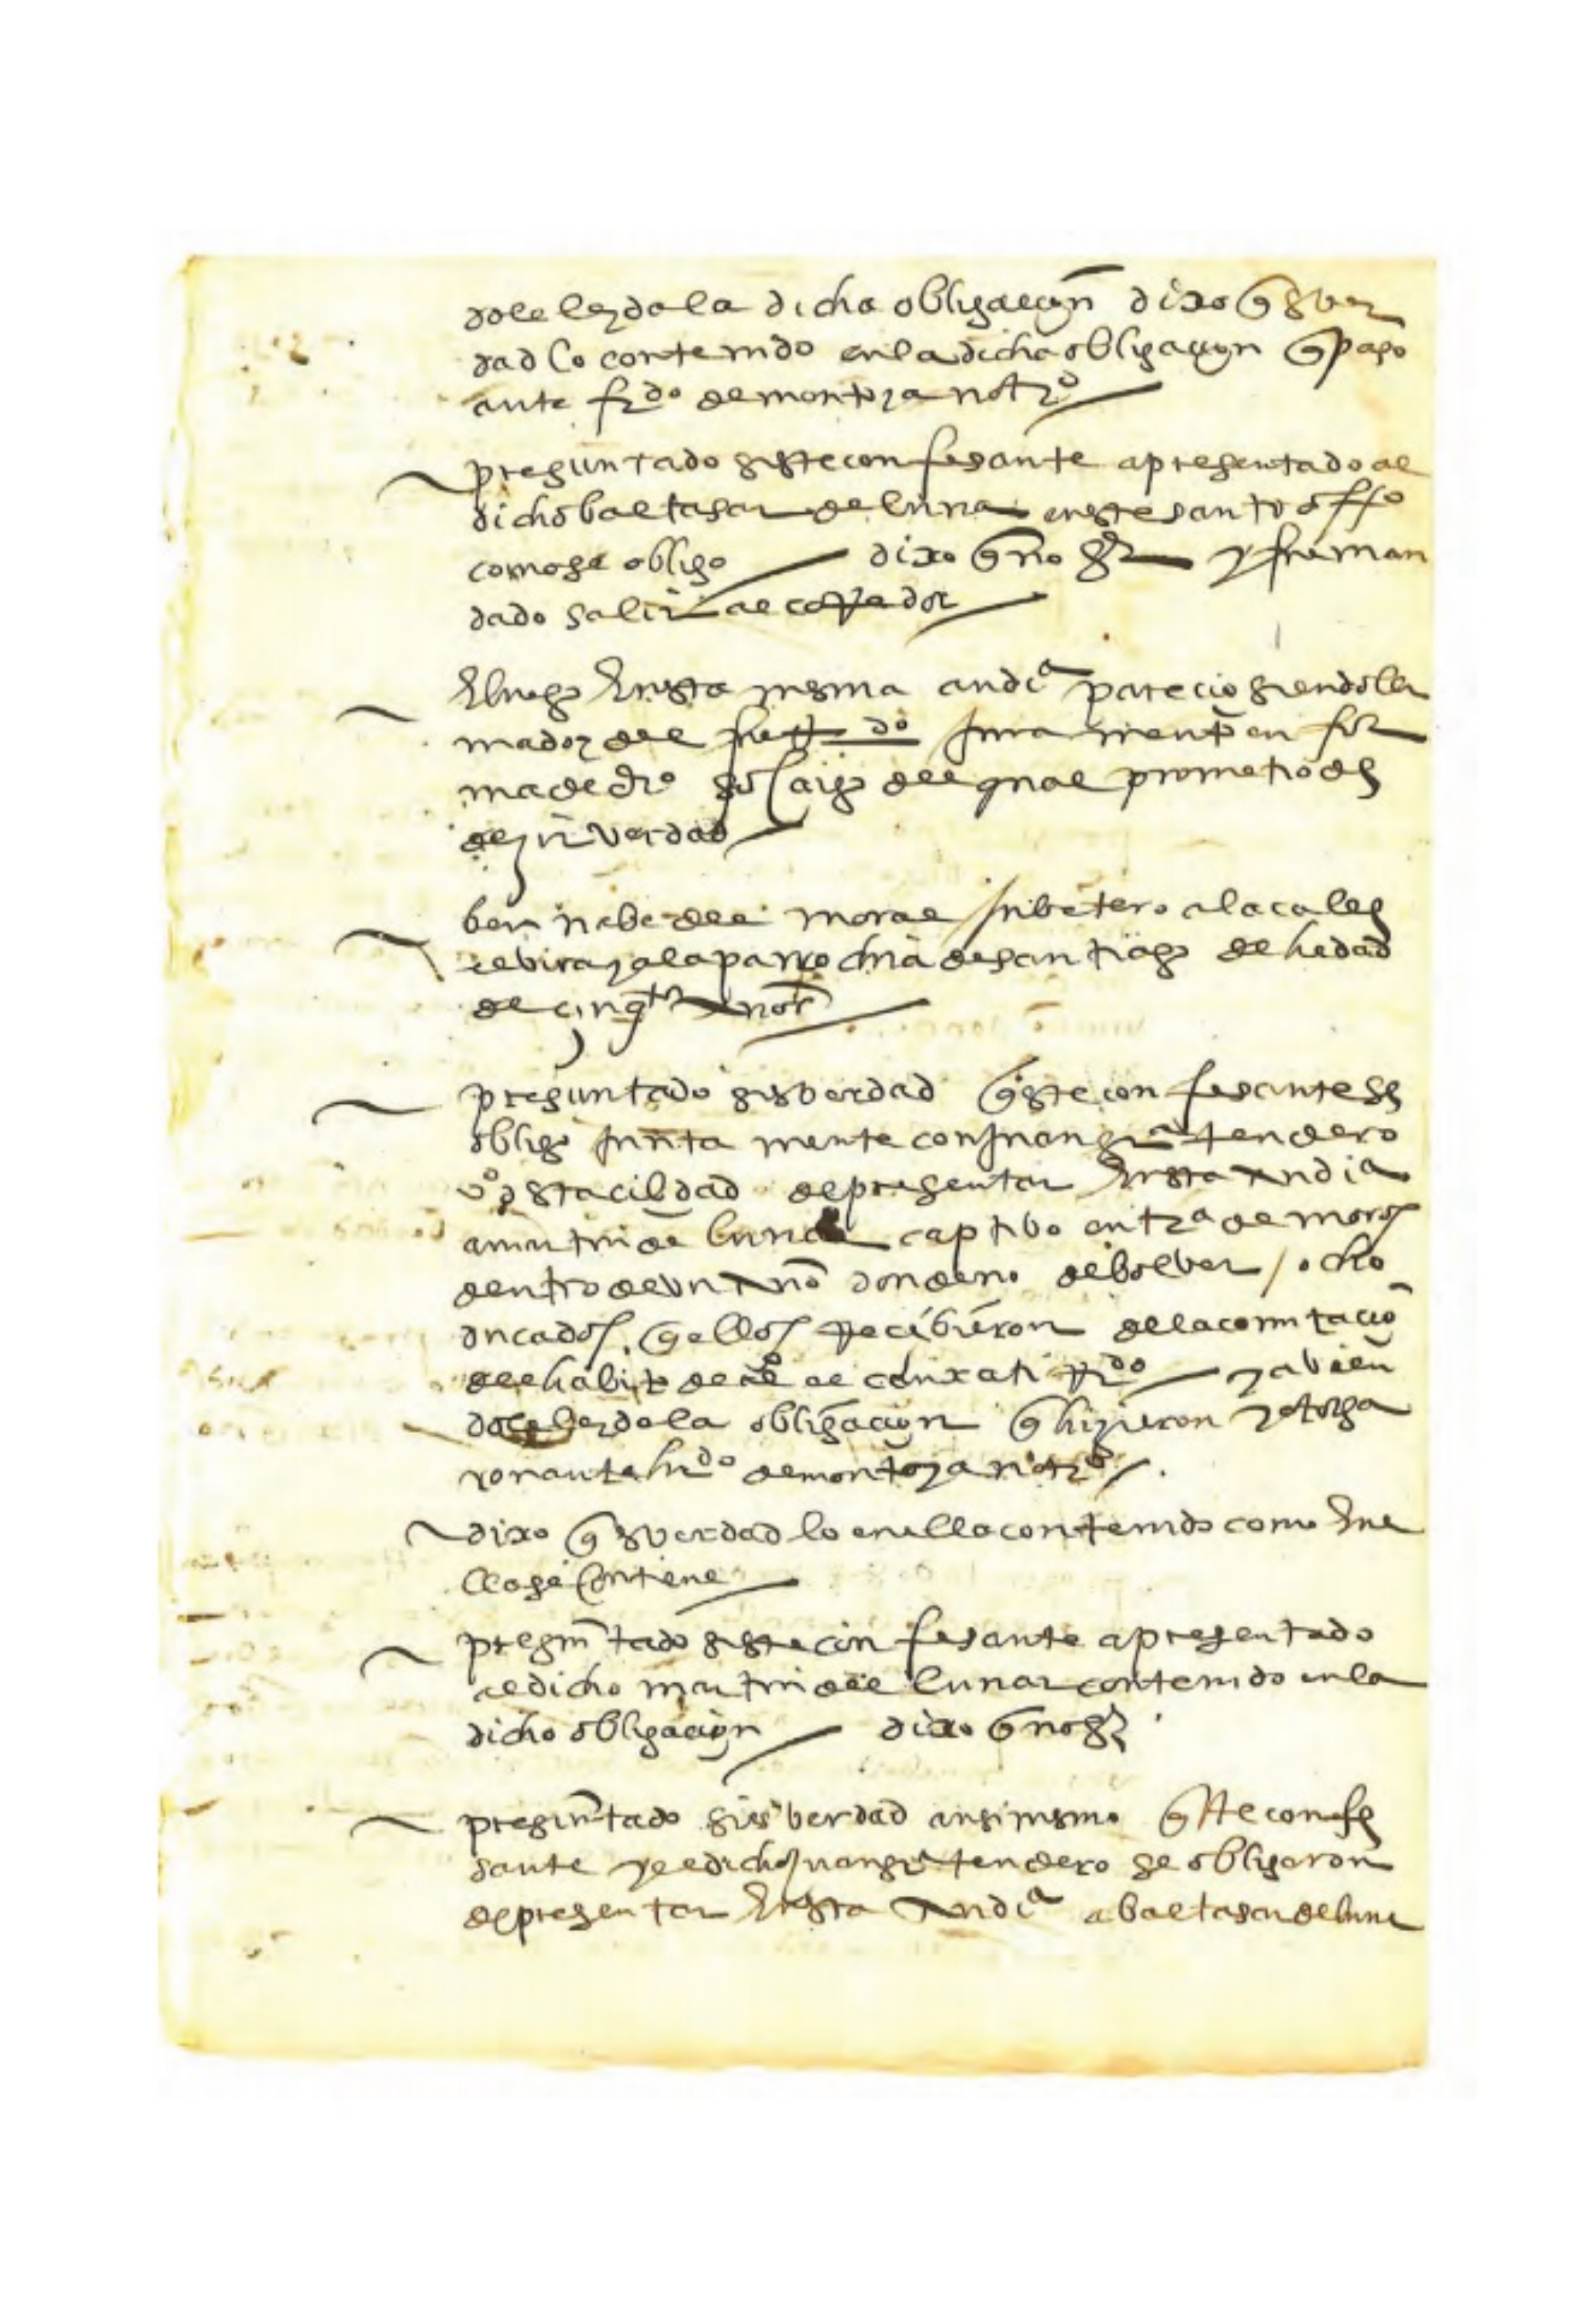 dole leyda la dicha obligaçion dixo q̃ es ver
dad lo contenido en la dicha obligaçion q̃ paso
ante frdo de montoya notro
preguntado si este confesante a presentado al
dicho baltasar de luna en este santo offo
como se obligo dixo q̃ no sr y fue man
dado salir al corredor
E luego En esta mesma audia parecio siendo lla
mado y del fue rdo Juramento en for
ma de dro so cargo del qual prometio de
dezir verdad
bernabe del moral a la calle
elvira y a la parrochia de santiago de hedad
de cinqta Anos
preguntado si es verdad q̃ este confesante se
obligo Juntamente con Juan gra tendero
vo de esta cibdad de presentar En esta Audia
a martin de luna captibo en tra de moros
dentro de un Año donde no de bolver / ocho
ducados q̃ ellos Recibieron de la comutacio
del habito de al con xati Rdo y abien
dole leydo la obligaçion q̃ hizieron y otorga
ron ante hrdo de montoya notro
dixo q̃ es verdad lo en ella contenido como En e
lla se Contiene
preguntado si este confesante a presentado
al dicho martin de luna contenido en la
dicho obligaçion dixo q̃ no sr
preguntado si es verdad ansi mismo q̃ este confe
sante y el dicho Juan gra tendero se obligaron
de presentar En esta Audia a baltasar de luna